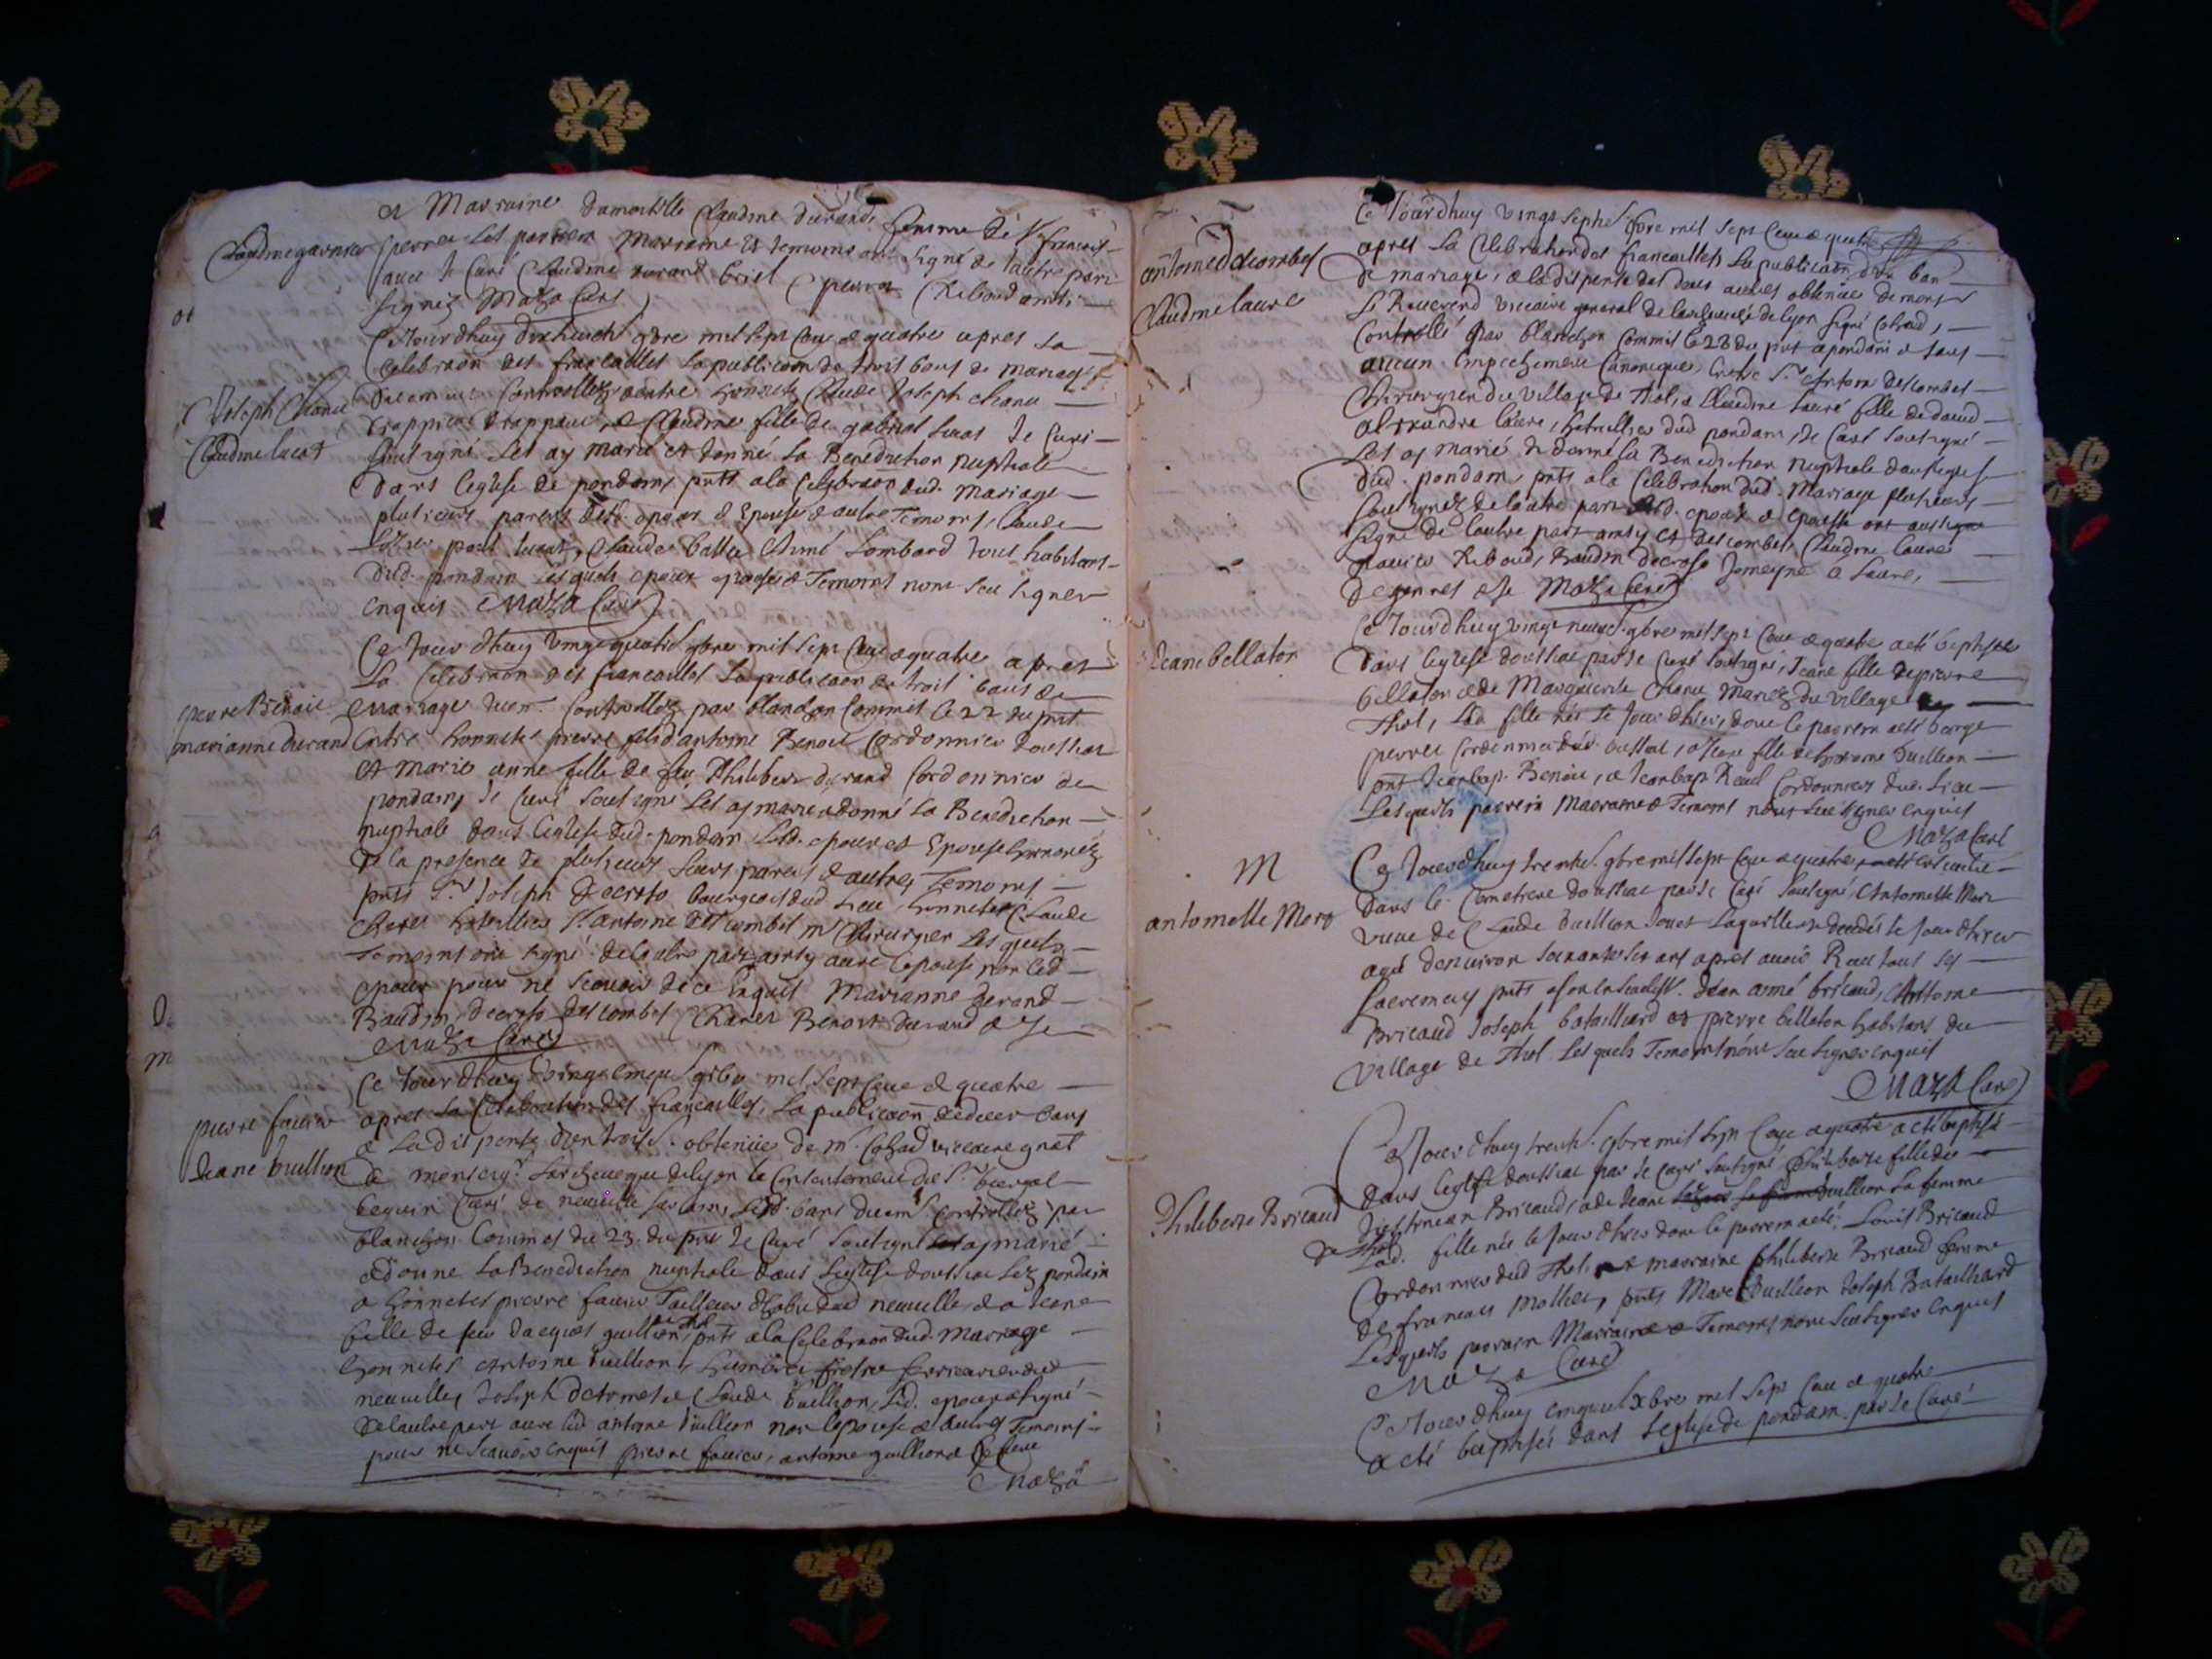 et Marraine damoiselle Claudine durand femme de Sr francois
Claudine garnier
pierre Les parrein Marraine et temoins ont signé de lautre part
avec le Curé Claudine durand Briel Riboud
signez Maza Curé
Ce Jourdhuy dixhuict 9bre mil sept cent et quatre apres La
Celebraon des fiancailles La publicaon de trois bans de mariage
C Joseph Chanu
Claudine lucat
Controllez entre honneste Claude Joseph Chanu
drappier et Claudine fille de gabriel lucas Je Curé
soubsigné Les ay marié et donné La Benediction nuptiale
dans leglise de pondain pnts a la Celebraon dud. Mariage
plusieurs parens desd. epoux et Epouse et autre Temoins, Claude
lucat, Claude Aimé Lombard tous habitans
dud. pondain lesquels epoux epouse et Temoins nont sceu signer
enquis Maza Curé
Ce Jour dhuy vingt quatre 9bre mil sept cent et quatre apres
La Celebraon des fiancailles La publicaon de trois bans de
pierre Benoit
marianne durand
Mariage Controllez par blanchon Commis le 22 du pnt
Entre honneste pierre fils dantoine Benoit Cordonnier doussiat
et Marie anne fille de feu Philibert durand Cordonnier de
pondain, Je Curé soubsigné Les ay marié et donné La Benediction
nuptiale dans leglise dud. pondain Lesd. epoux et Epouse honorez
de la presence de plusieurs leurs parens et autres Temoins
pnts Sr Joseph Decroso bourgeois dud. Lieu honnestes Claude
Charet Sr antoine descombes Mr Chirurgien Lesquels
temoins ont signé de lautre part avec lepouse non led.
epoux pour ne scavoir de ce Enquis Marianne durand
Baudin, decroso descombes Charet Benoit durand et Je
Maza Curé
Ce Jour dhuy vingt cinqu 9bre mil sept cent et quatre
apres la Celebration des fiancailles, La publicaon de deux bans
pierre favier
Jeane Vuillion
et La dispense du troise. obtenue de Mr. Cohad viccaire gnal
de monseigr. Larchevesque de lyon le Consentement de Sr.
beguin Curé de neuville les dames Lesd. bans Controllez par
blanchon Commis du 23. du pnt Je Curé soubsigné ay marié
et donné La Benediction nuptiale dans Leglise doussiat Lez pondain
a honnestes pierre favier Tailleur dhabit dud neuville et a Jeane
fille de feu Jacques guillion pnts a la Celebraon dud. Mariage
honnestes Antoine Vuillion, frere
neuville, Joseph et Claude Vuillion, Led. epoux a signé
de lautre part avec led antoine Vuillion non lepouse et autres Temoins
pour ne scavoir enquis pierre favier, antoine guillion et Je Curé
Maza
Ce Jourdhuy vingt sept 9bre mil sept cent et quatre
antoine descombes
Claudine laure
apres La Celebration des fiancailles La publicaon dun ban
de mariage, et la dispense des deux autres obtenue de monsr
Le Reverend viccaire general de larchevesché de lyon signé Cohad,
Controllé par blanchon Commis le 28 du pnt a pondain et sans
aucun Empechement Canonique, Entre Sr. Antoin descombes
Chirurgien du village de Thol, et Claudine Lauré fille de david
alexandre laure, hostellier dud pondain, Je Curé soubsigné
Les ay marié et donné La Benediction Nuptiale dans leglise
dud. pondain, pnts a la Celebration dud. Mariage plusieurs
soubsignez de lautre part Lesd. epoux et epouse ont
signé de lautre part et descombes, Claudine laure
Riboud, Baudin decroso Laure,
et Je Maza Curé
Jeane bellaton
Ce Jourdhuy vingt neuf 9bre mil sept cent et quatre a eté baptisée
dans leglise doussiat par Je Curé soubsigné, Jeane fille de pierre
bellaton et de Marguerite Chanu Mariez du village
Thol, Lad fille née Le Jour dhier, dont le parrein a eté george
perret Cordonnier dud. oussiat, et Jeane fille de Vuillion
pnt Jeanbap. Benoit, et Jeanbap. Cordonnier dud. Lieu
Lesquels parrein Marraine et Temoins nont sceu signer enquis
Maza Curé
M
antoinette Mora
Ce Jourdhuy trente. 9bre mil sept cent et quatre
dans le Cimetiere doussiat par Je Curé soubsigné Antoinette Mora
veuve de Claude Vuillion Laquelle decedée le Jour dhier
agée denviron soixante six ans apres avoir Receu tous les
sacremens pnts Jean aimé bricaud, Antoine
Bricaud Joseph batailliard et pierre bellaton habitans du
village de Thol Lesquels Temoins nont sceu signer enquis
Maza Curé
Philiberte Bricaud
Ce Jour dhuy trente. 9bre mil sept Cent et quatre a eté baptisée
dans leglise doussiat par Je Curé soubsigné Philiberte fille de
Bricaud, et de Jeane Vuillion Sa femme
de Thol Lad. fille née le Jour dhier dont le parrein a eté Louis Bricaud
Cordonnier dud Thol et marraine Philiberte Bricaud femme
de francois Mollier, pnts Marc Vuillion Joseph Batailliard
Lesquels parrein Marraine et Temoins nont sceu signer enquis
Maza Curé
Ce Jour dhuy cinquie Xbre mil sept Cent et quatre
a eté baptisée dans Leglise de pondain par Je Curé